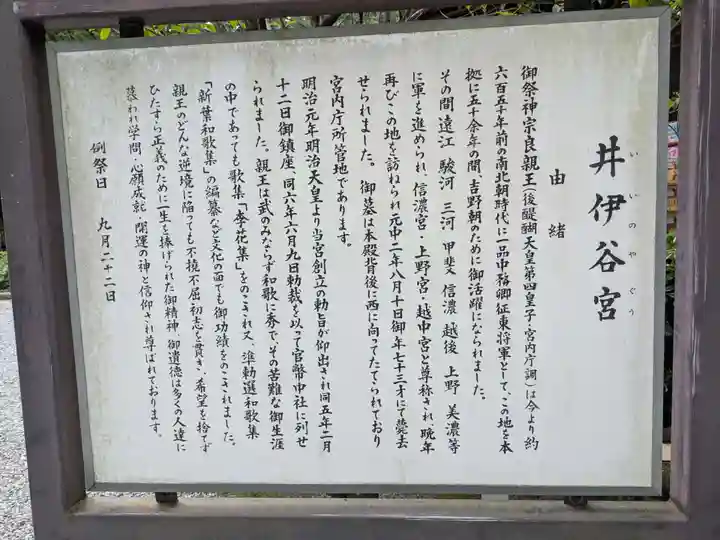 井伊谷宮
いいのやぐう
由緒
御祭神宗良親王(後醍醐天皇第四皇子・宮内庁調)は今より約
六百五十年前の南北朝時代に一品中務卿征東将軍として、この地を本
拠に五十余年の間、吉野朝のために御活躍になられました。
その間遠江 駿河 三河 甲斐 信濃 越後 上野 美濃等
に軍を進められ、信濃宮・上野宮・越中宮と尊称され、晩年
再びこの地を訪ねられ元中二年八月十日御年七十三才にて薨去
せられました。 御墓は本殿背後に西に向ってたてられており
宮内庁所管地であります。
明治元年明治天皇より当宮創立の勅旨が仰出され同五年二月
十二日御鎮座、同六年六月九日勅裁を以って官幣中社に列せ
られました。親王は武のみならず和歌に秀で、その苦難な御生涯
の中であっても歌集「李花集」をのこされ又、準勅選和歌集
「新葉和歌集」の編纂など文化の面でも御功績をのこされました。
親王のどんな逆境に陥っても不撓不屈初志を貫き、希望を捨てず
ひたすら正義のために一生を捧げられた御精神 御遺徳は多くの人達に
慕われ学問・心願成就・開運の神と信仰され尊ばれております。
例祭日 九月二十二日